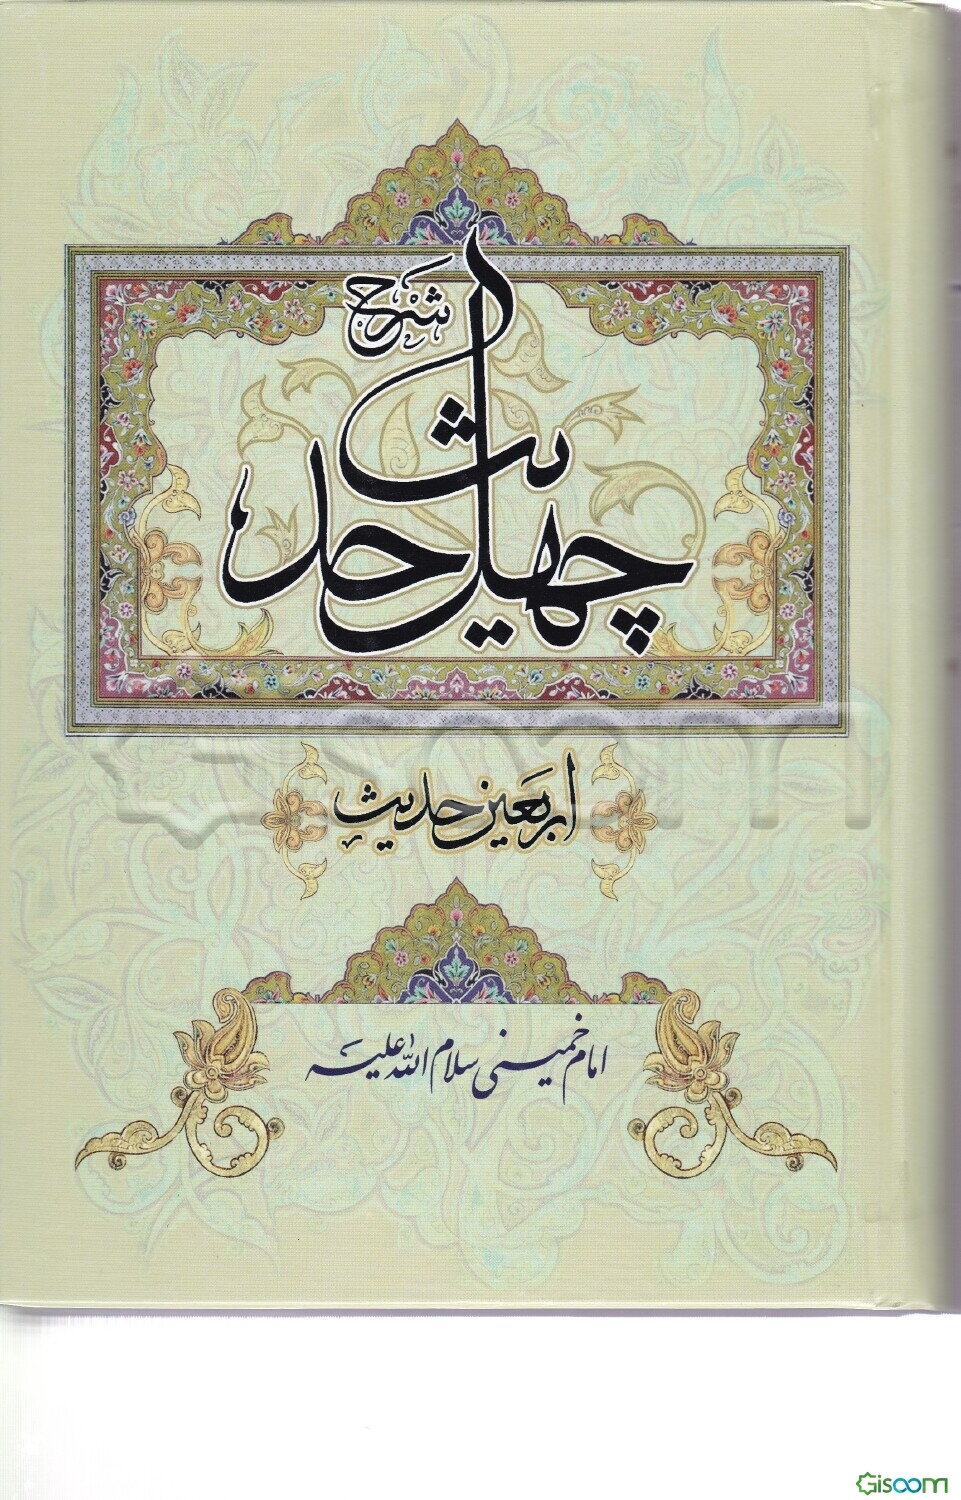 شرح
چهل حدیث
اربعین حدیث
امام خمینی سلام الله علیه
Gisoom